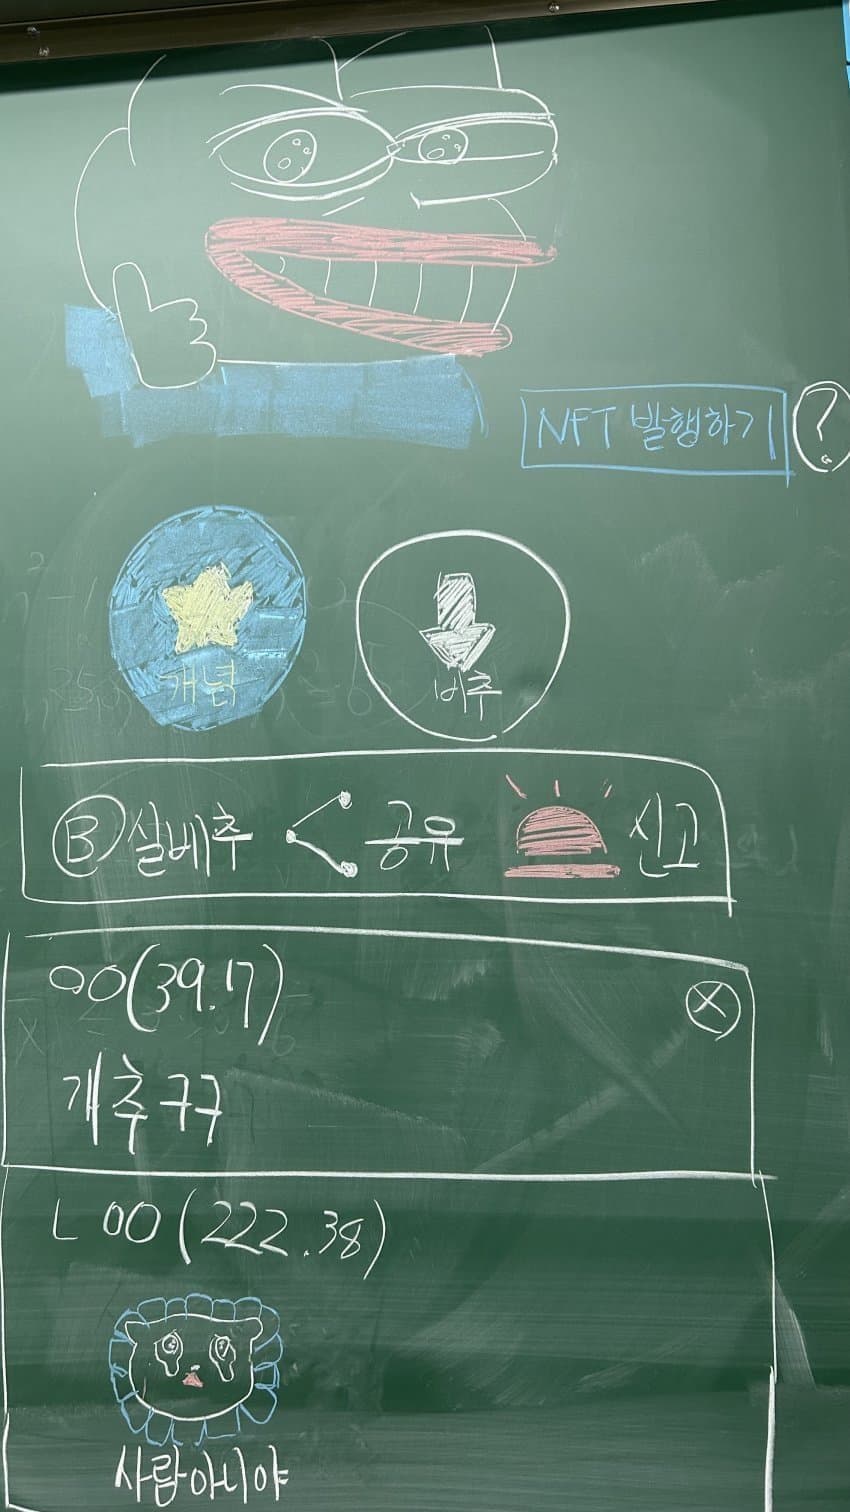 NFT 발행하기 ?
개념 비추
B 실베추 공유 신고
ㅇㅇ(39.17) X
개추ㅋㅋ
ㄴ ㅇㅇ(222.38)
사람아니야